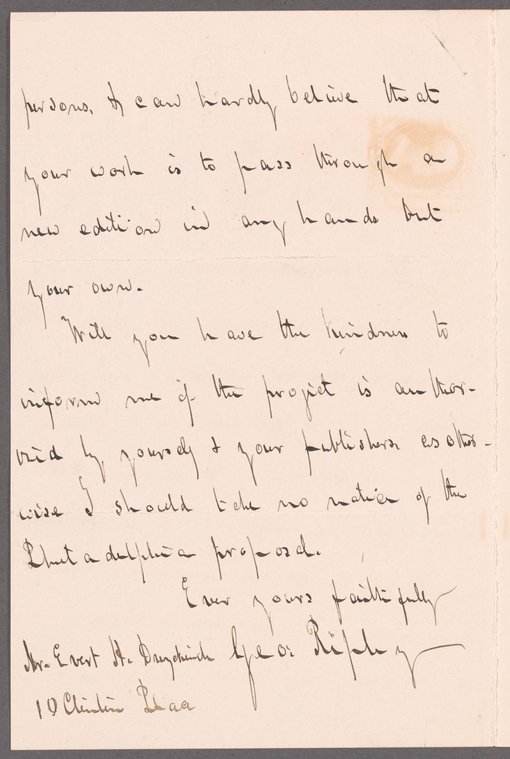 persons. I can hardly believe that
your work is to pass through a
new edition in any hands but
your own.
Will you have the kindness to
inform me if the project is author-
ized by yourself & your publishers, as other-
wise I should take no notice of the
Philadelphia proposal.
Ever yours faithfully
Geo. Ripley
Mr. Evert A. Duyckinck
10 Clinton Place